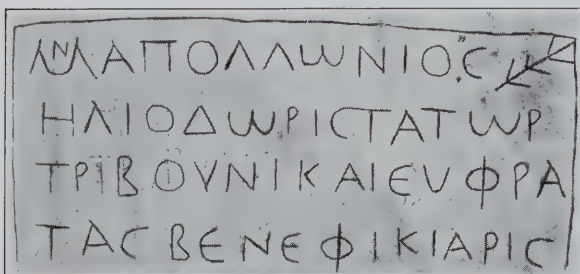 ΜΝΑΠΟΛΛΩΝΙΟϹ
ΗΛΙΟΔΩΡΙϹΤΑΤΩΡ
ΤΡΙΒΟΥΝΙΚΑΙΕΥΦΡΑ
ΤΑϹΒΕΝΕΦΙΚΙΑΡΙϹ